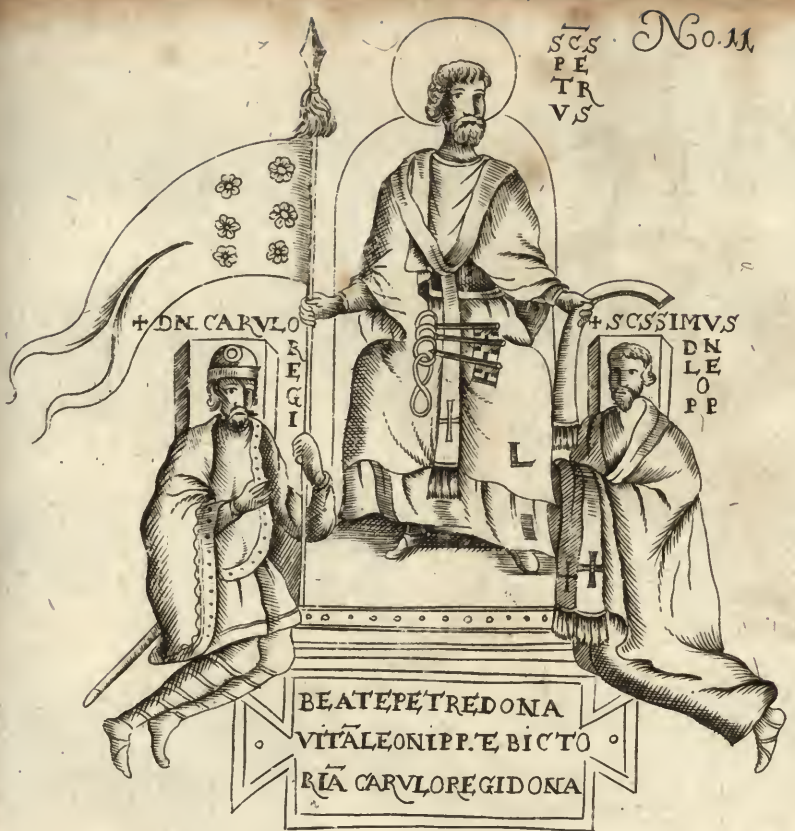 No. 11
SC̅S
PE
TR
VS
+ DN. CARVLO
R
E
G
I
+ SCSSIMVS
D N
L E
O
P P
L
I
BEATEPETREDONA
VITA̅LEONIPP.E BICTO
RIA̅ CARVLOREGIDONA